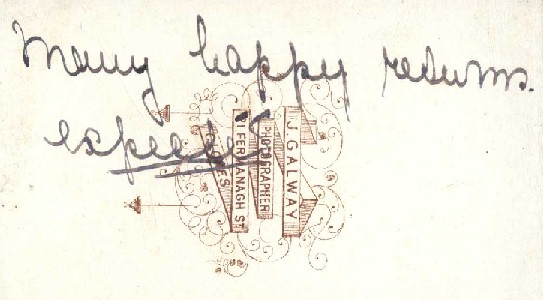 Many happy returns.
expected
J. GALWAY
PHOTOGRAPHER
FERMANAGH ST.